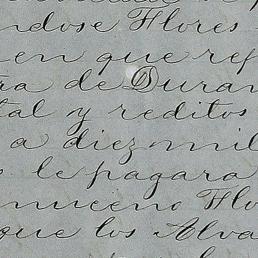 ndose Flores
en que ref
ra de Duran
tal y reditos
a diez mil
le pagara
muceno Flo
que los Alva